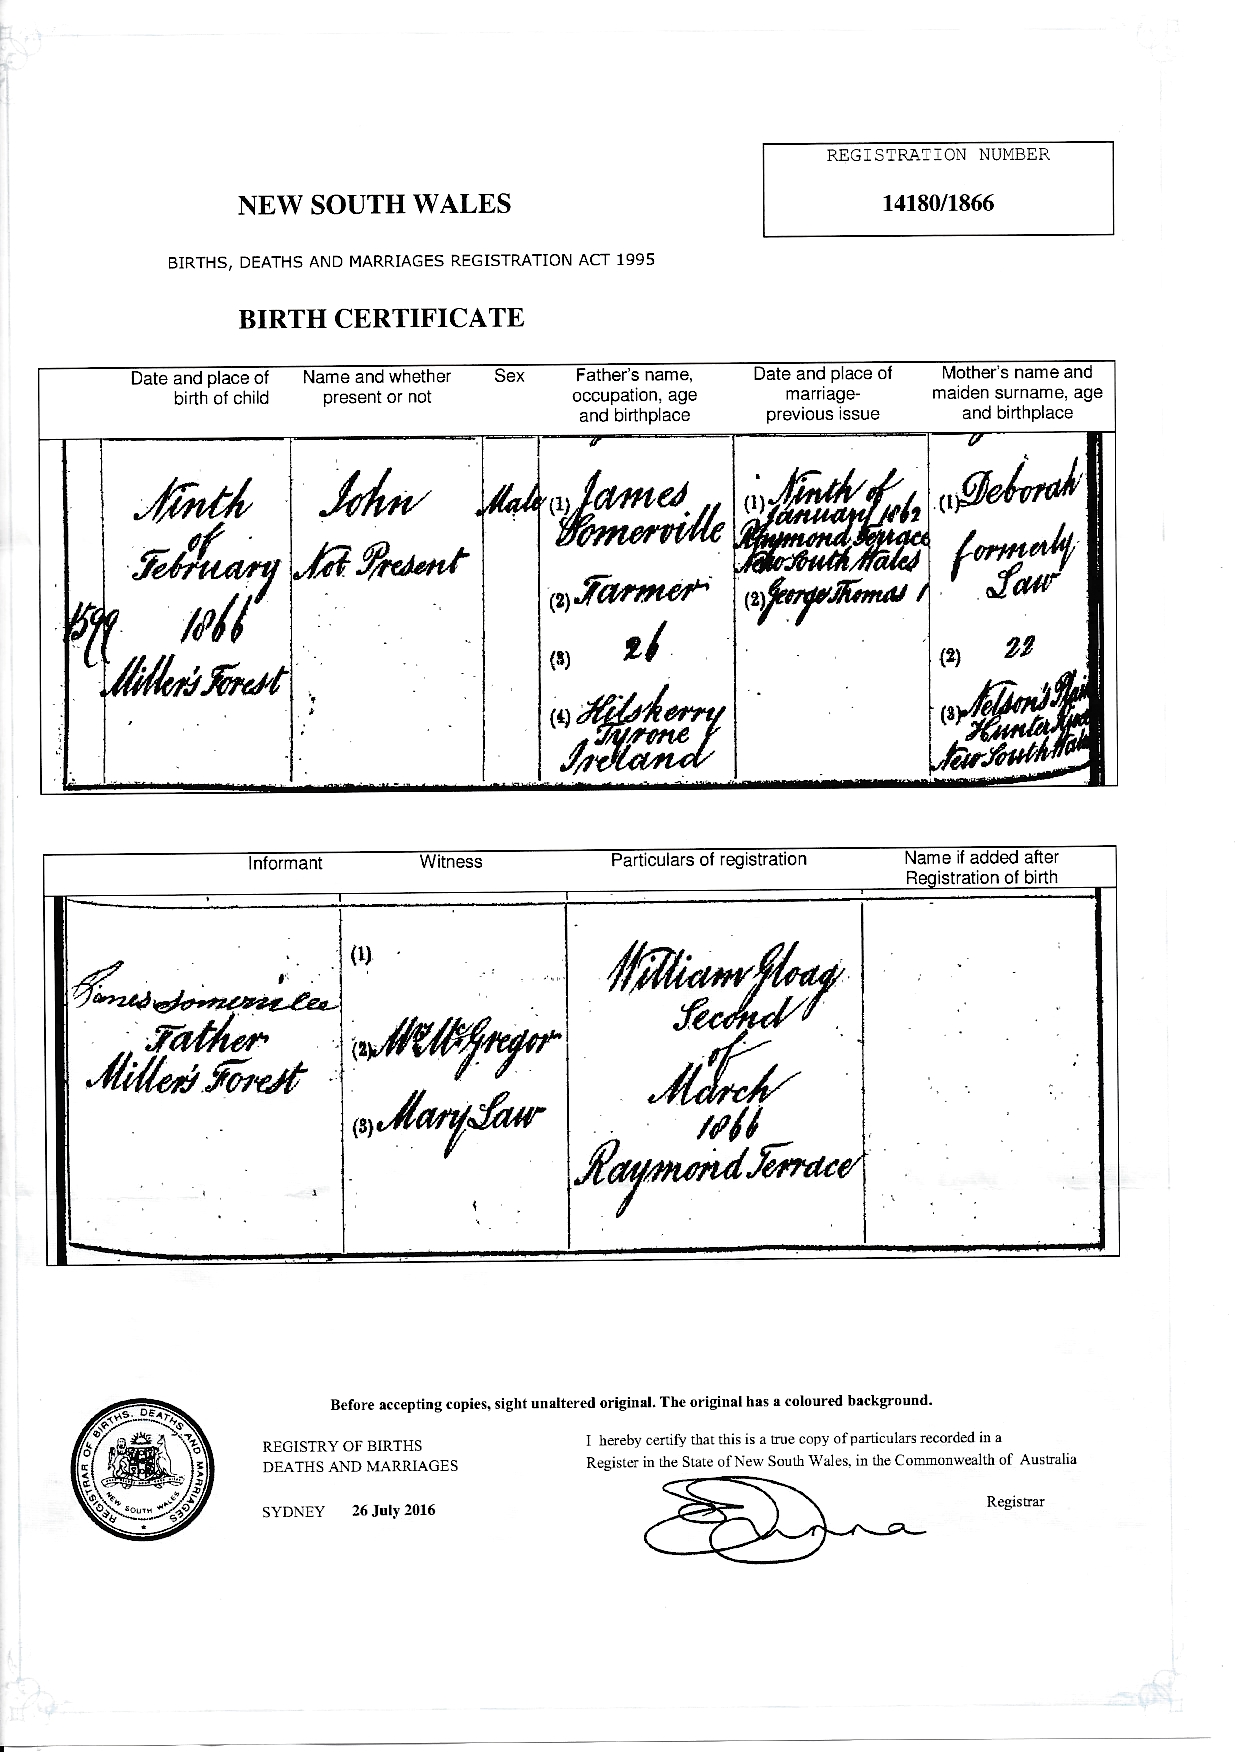 REGISTRATION NUMBER
14180/1866
NEW SOUTH WALES
BIRTHS, DEATHS AND MARRIAGES REGISTRATION ACT 1995
BIRTH CERTIFICATE
Date and place of
birth of child
Name and whether
present or not
Sex
Father's name,
occupation, age
and birthplace
Date and place of
marriage-
previous issue
Mother's name and
maiden surname, age
and birthplace
1599
Ninth
of
February
1866
Miller's Forest
John
Not Present
Male
(1) James
Somerville
(2) Farmer
(3) 26
(4) Hilskerry
Tyrone
Ireland
(1) Ninth of
January 1862
Raymond Terrace
New South Wales
(2) George Thomas 1
(1) Deborah
formerly
Law
(2) 22
(3) Nelson's Plains
Hunter River
New South Wales
Informant
Witness
Particulars of registration
Name if added after
Registration of birth
James Somerville
Father
Miller's Forest
(1)
(2) Mrs McGregor
(3) Mary Law
William Gloag
Second
of
March
1866
Raymond Terrace
Before accepting copies, sight unaltered original. The original has a coloured background.
REGISTRAR OF BIRTHS, DEATHS AND MARRIAGES
NEW SOUTH WALES
REGISTRY OF BIRTHS
DEATHS AND MARRIAGES
SYDNEY 26 July 2016
I hereby certify that this is a true copy of particulars recorded in a
Register in the State of New South Wales, in the Commonwealth of Australia
Registrar